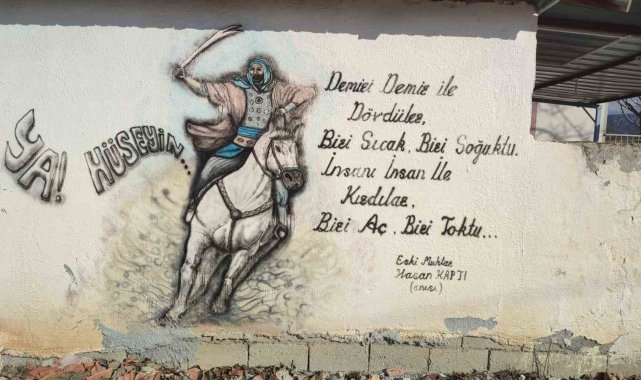 YA! HÜSEYİN...
Demiri Demir ile
Dövdüler,
Biri Sıcak, Biri Soğuktu.
İnsanı İnsan İle
Kırdılar,
Biri Aç, Biri Toktu...
Eski Muhtar
Hasan KAPTI
(anısı)